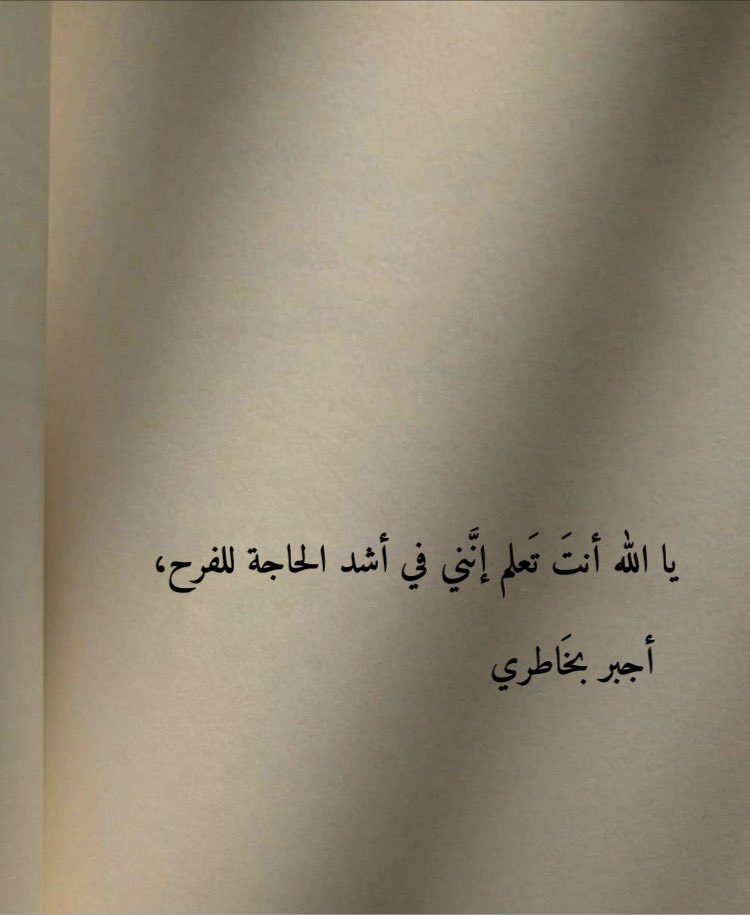 يا الله أنتَ تَعلم إنَّني في أشد الحاجة للفرح،
أجبر بخَاطري